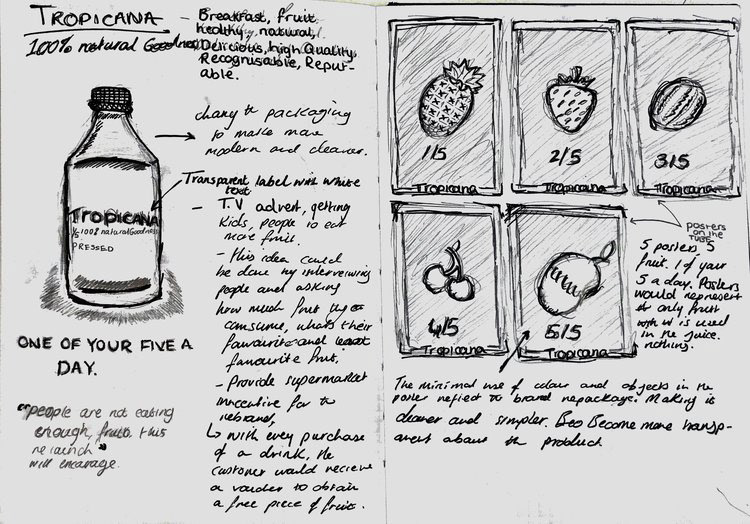 TROPICANA
100% natural Goodness
- Breakfast, fruit
healthy, natural,
Delicious, high Quality,
Recognisable, Reput-
able.
chang th packaging
to make more
modern and cleaner.
Transparent label with white
text
Tropicana
100% natural Goodness
PRESSED
ONE OF YOUR FIVE A
DAY.
"people are not eating
enough, fruit. this
relaunch"
will encourage.
- T.V advert, getting
kids, people to eat
more fruit.
- this idea could
be done by interveiwing
people and asking
how much fruit they
consume, whats their
favourite and least
favourite fruit.
- Provide supermarket
incentive for the
rebrand,
↳ with every purchase
of a drink, the
customer would recieve
a voucher to obtain
a free piece of fruit.
1/5
Tropicana
2/5
Tropicana
3/5
Tropicana
4/5
Tropicana
5/5
Tropicana
posters
on the
TUBE
5 posters 5
fruit. 1 of your
5 a day. Posters
would represent
only fruit
is used
in the juice.
nothing.
The minimal use of colour and objects in the
poster reflect the brand repackage. Making is
cleaner and simpler. Become more transp-
arent about the product